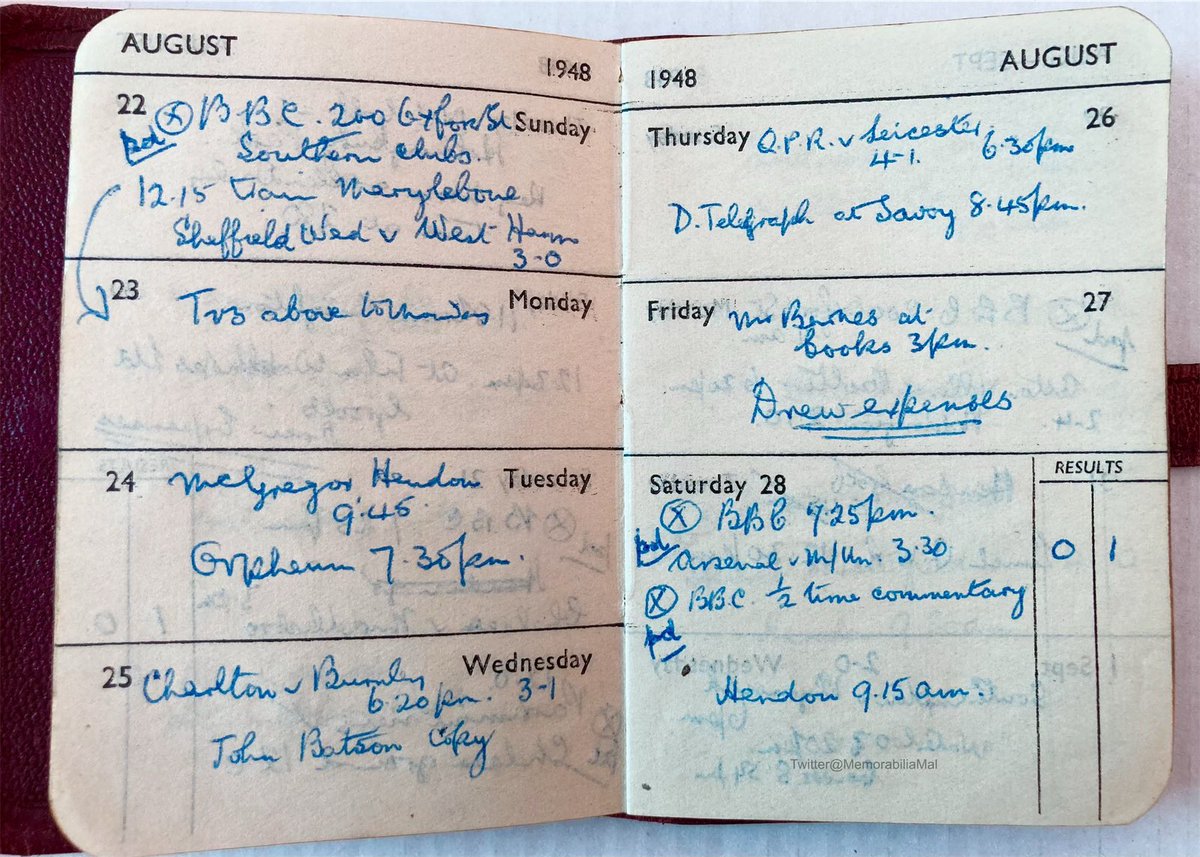 AUGUST
1948
22 Sunday
Ⓧ B.B.C. 200 Oxford St
pd
Southern clubs.
12.15 train Marylebone
Sheffield Wed v West Ham
3-0
23 Monday
above
24 Tuesday
McGregor Hendon
9.45.
Orpheum 7.30pm.
25 Wednesday
Charlton v Burnley
6.20pm. 3-1
John Batson Copy
1948
AUGUST
Thursday 26
Q.P.R. v Leicester. 6.30pm
4-1.
D. Telegraph at Savoy 8.45pm.
Friday 27
Mr Barnes at
books 3pm.
Drew expenses
Saturday 28
RESULTS
Ⓧ BBC 7.25pm.
pd
Arsenal v M/Un. 3.30
0 1
Ⓧ BBC. ½ time commentary
pd
Hendon 9.15 am.
Twitter@MemorabiliaMal